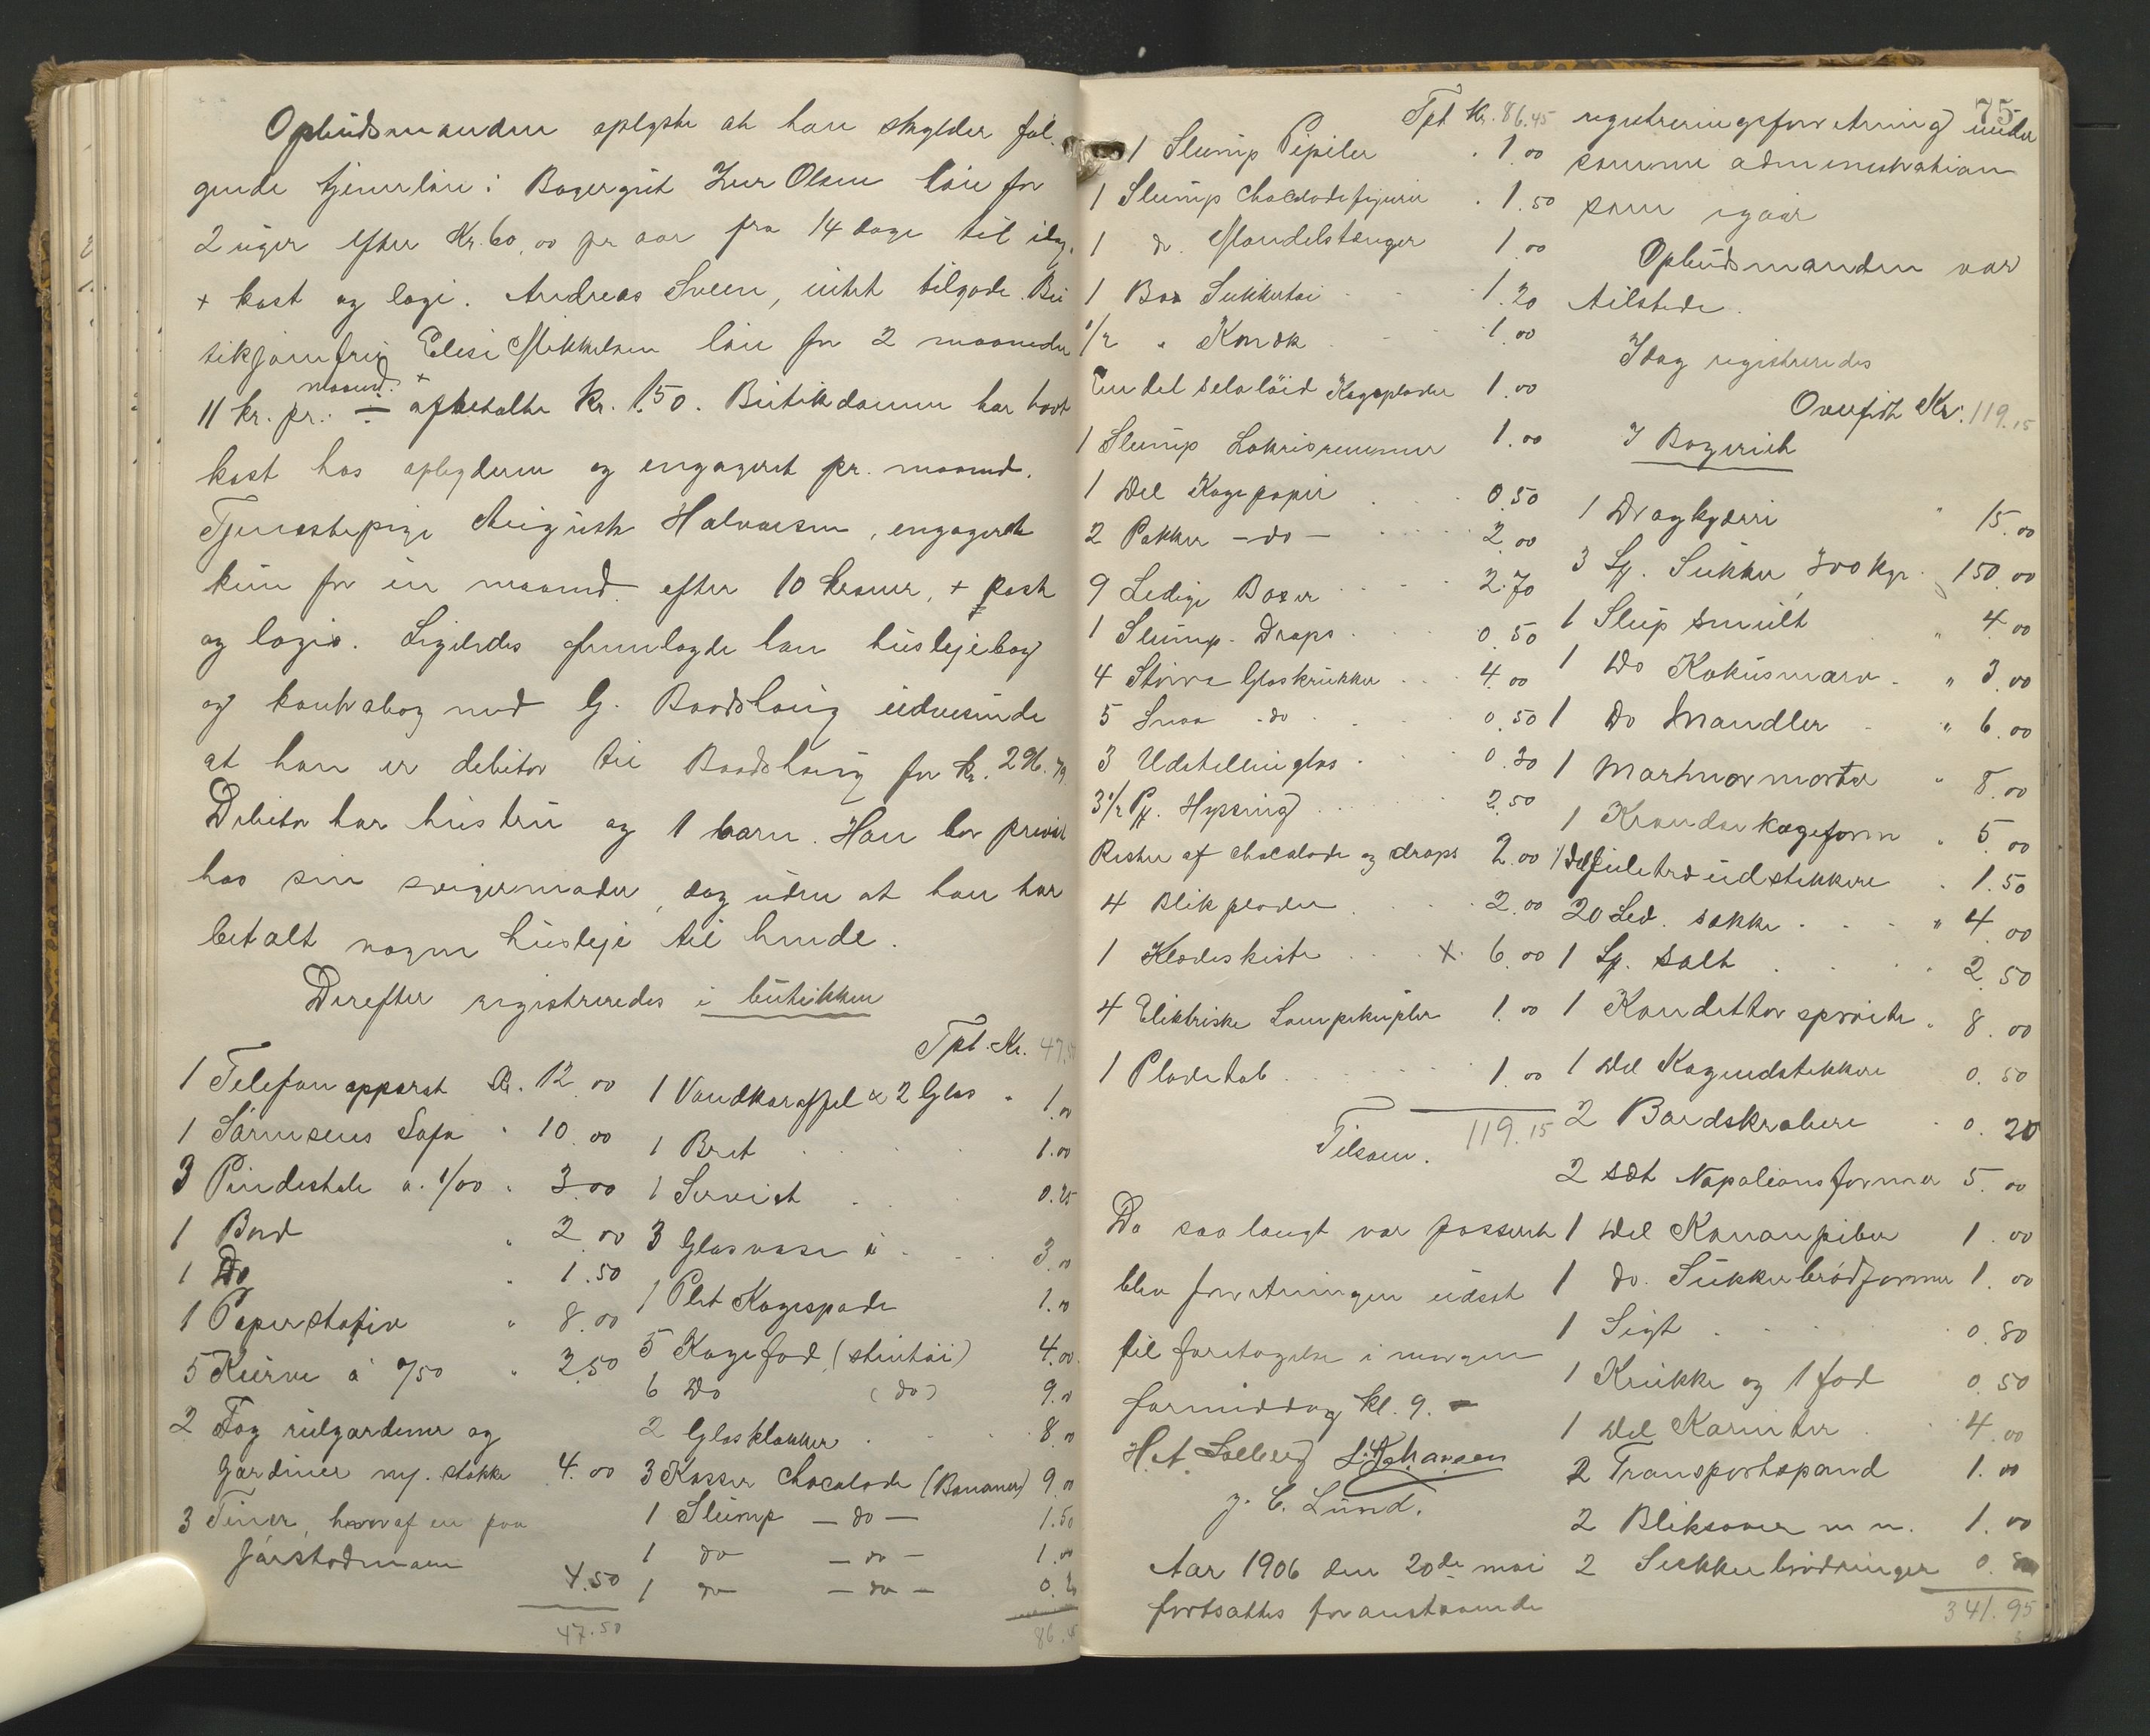 Opbudsmanden oplyste at han skylder føl-
gende tjenerløn: Bagergut Zur Olsen løn for
2 uger efter Kr. 60,00 pr aar fra 14 dage til idag.
+ kost og logi. Andreas Sveen, intet tilgode. Bu
tikjomfru Elise Mikkelsen løn for 2 maaneder
11 kr. pr. maand + afbetalte Kr. 1.50. Butikdamen har havt
kost hos opbyderen og engageret pr. maaned.
Tjenestepige Auguste Halvorsen, engageret
kun for en maaned efter 10 kroner, + kost
og logis. Ligeledes fremlagde han huslejebog
og kontrabog med G. Baadshaug udvisende
at han er debitor til Baadshaug for kr. 296.79
Debitor har hustru og 1 barn. Han bor privat
hos sin svigermoder, dog uden at han har
betalt nogen husleje til hende.
Derefter registreredes i butikken
1 Telefonapparat Kr. 12.00
1 Sørnsens Safa " 10.00
3 Pindestole a. 1/00 " 3.00
1 Bord " 2.00
1 Do " 1.50
1 Papirstativ " 8.00
5 Kurve á 0/50 " 2.50
2 Fag rulgardiner og
gardiner m/. stokke 4.00
3 Tiner, hvoraf en paa
Jarstadmoen
4.50
47.50
Tpt. Kr. 47.50
1 Vandkaraffel & 2 Glas " 1.00
1 Bret 1.00
1 Serviet 0.25
3 Glasvase á 3.00
1 Plet Kagespade 1.00
5 Kagefad (stentøi) 4.00
6 Do (do) 9.00
2 Glasklokker 8.00
3 Kasser Chocolade (Bananer) 9.00
1 Slump - do - 1.50
1 do - do - 1.00
1 do - do - 0.20
86.45
Tpt Kr. 86.45
1 Slump Pepiler 1.00
1 Slump Chocoladefigurer 1.50
1 do. Mandelstænger 1.00
1 Box Sukkertøi 1.20
1/2 " Kondk 1.00
En del seloløid Kageplader 1.00
1 Slump Lakrisremmer 1.00
1 Del Kagepapir 0.50
2 Pakker - do - 2.00
9 Ledige Boxer 2.70
1 Slump Drops 0.50
4 Større Glaskrukker 4.00
5 Smaa do 0.50
3 Udstillinglas 0.30
3 1/2 Pk. Hyssing 2.50
Rester af chocolade og drops 2.00
4 Blikplader 2.00
1 Klædeskiste + 6.00
4 Elektriske Lampekupler 1.00
1 Pladetob 1.00
Tilsam. 119.15
Da saa langt var passeret
blev forretningen udsat
til foretagelse i morgen
formiddag kl. 9. -
H. A. Solberg L. Johansen
J. C. Lund.
Aar 1906 den 20de mai
fortsattes foranstaaende
75
registreringsforretning under
samme administration
som igaar
Opbudsmanden var
tilstede.
Idag registreredes
Overført Kr: 119.15
I Bageriet
1 Dragkjærre " 15.00
3 Sk. Sukker, 300 kgr. 150.00
1 Slup smult " 4.00
1 Do Kokusmarv " 3.00
1 Do Mandler " 6.00
1 Marmormorter " 8.00
1 Krandsekageform " 5.00
1 Del Juletræudstikkere " 1.50
20 Led. sække " 4.00
1 Sk. Salt 2.50
1 Kondittorsprøite " 8.00
1 Del Kageudstikkere 0.50
2 Bordskrabere 0.20
2 sæt Napoleonsformer 5.00
1 Del Kononpiber 1.00
1 do. Sukkerbrødformer 1.00
1 Sigt 0.80
1 Krukke og 1 fad 0.50
1 Del Karinter 4.00
2 Transportspand 1.00
2 Bliksover m m. 1.00
2 Sukkerbrødringer 0.
341.95